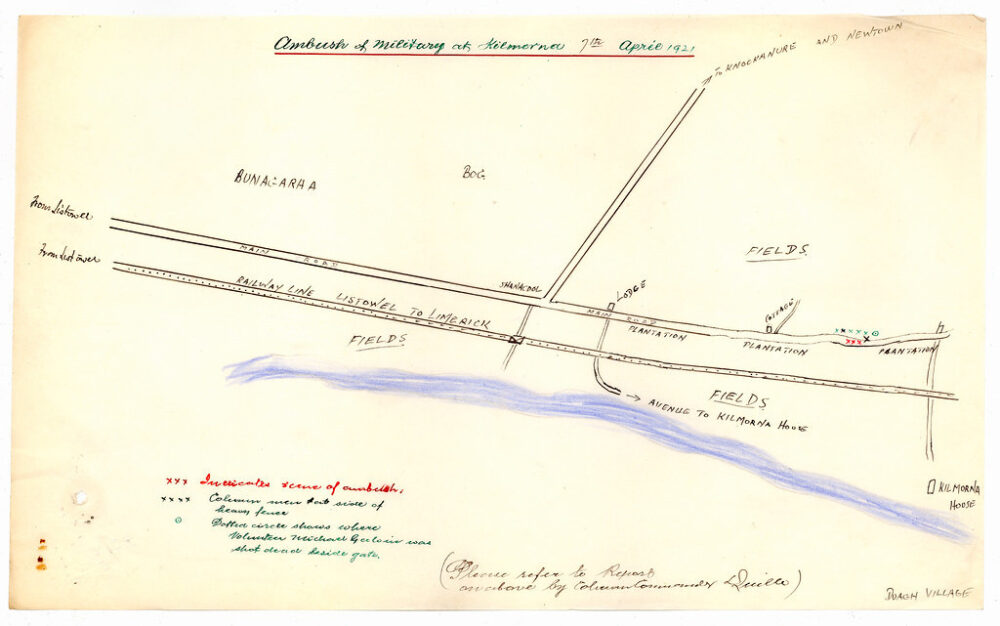 Ambush of Military at Kilmorna 7th April 1921
To KNOCKANURE AND NEWTOWN
BUNAGARHA
BOG
From Listowel
From Listowel
MAIN ROAD
RAILWAY LINE LISTOWEL TO LIMERICK
SHANACOOL
FIELDS
LODGE
FIELDS
MAIN ROAD
COTTAGE
PLANTATION
PLANTATION
PLANTATION
FIELDS
AVENUE TO KILMORNA HOUSE
KILMORNA
HOUSE
xxx Indicates scene of ambush.
xxxx Column men side of
heavy fence
Dotted circle shows where
Volunteer Michael Galvin was
shot dead beside gate.
(Please refer to Report
on above by Column Commander Quille)
VILLAGE